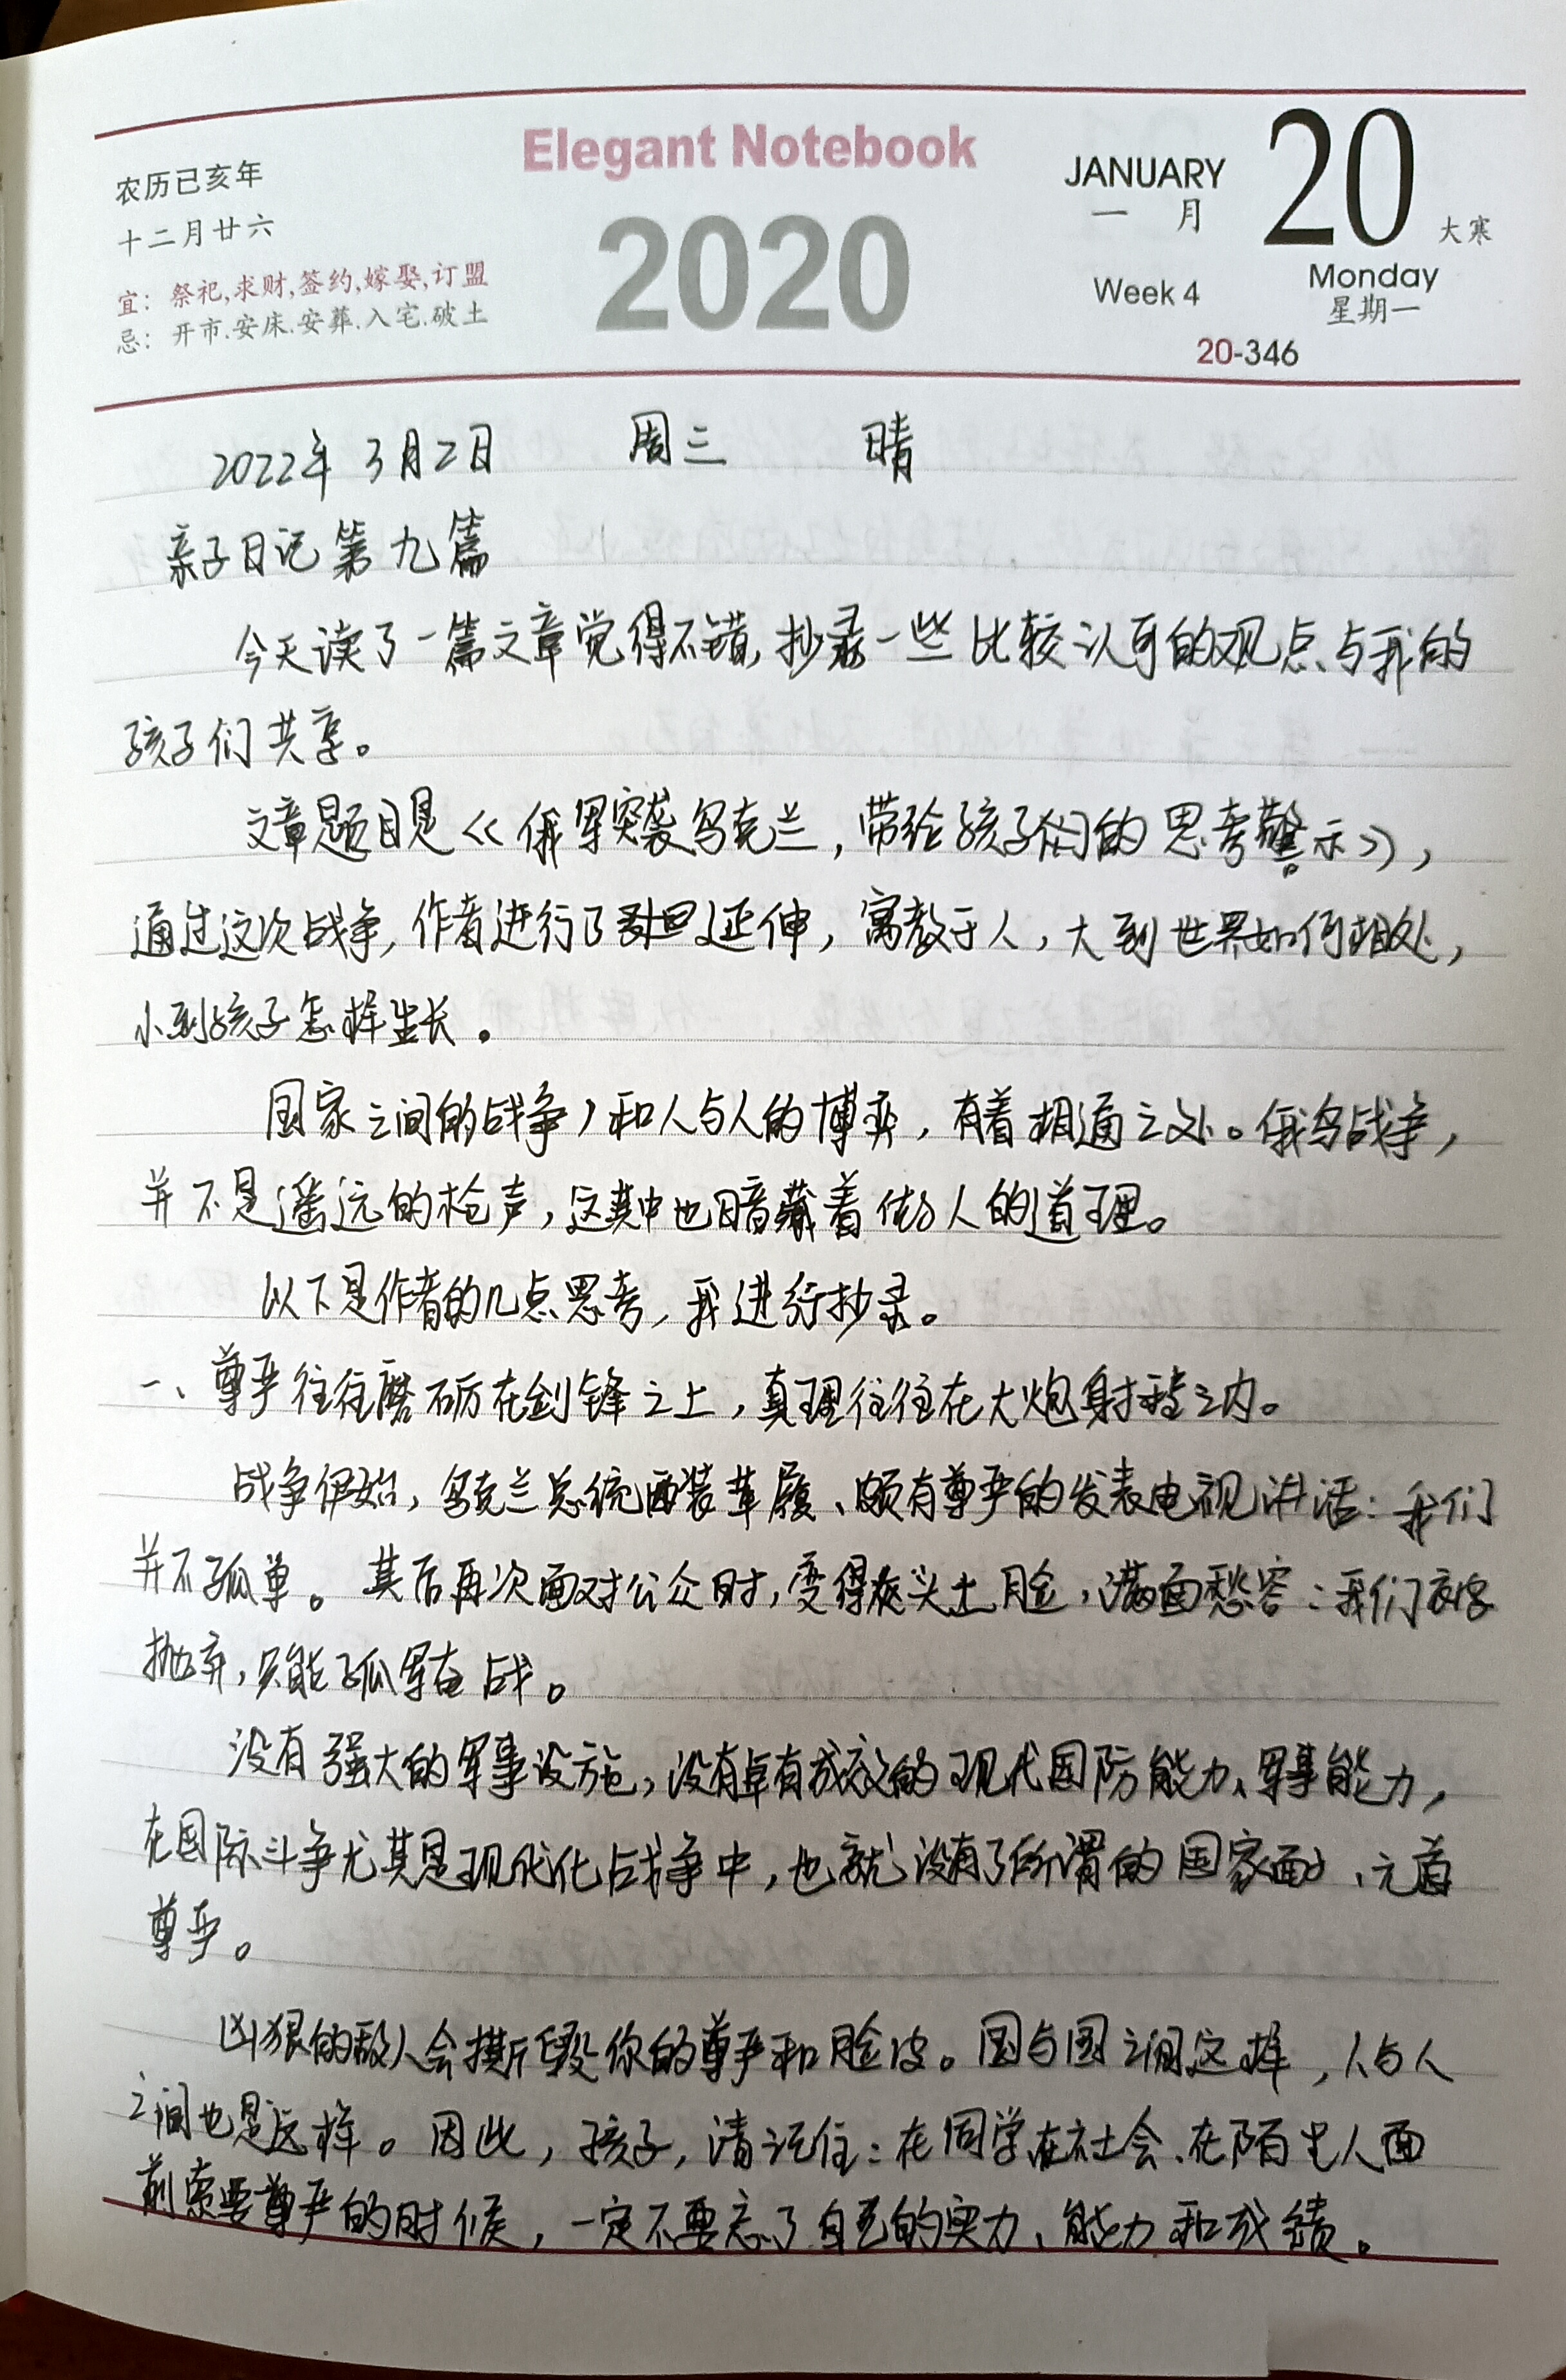 农历己亥年
十二月廿六
宜：祭祀,求财,签约,嫁娶,订盟
忌：开市.安床.安葬.入宅.破土
Elegant Notebook
2020
JANUARY
一 月
20
大寒
Week 4
Monday
星期一
20-346
2022年 3月2日 周三 晴
亲子日记 第九篇
今天读了一篇文章觉得不错,抄录一些比较认可的观点、与我的
孩子们共享。
文章题目是《俄军突袭乌克兰,带给孩子们的思考警示》,
通过这次战争,作者进行了延伸,寓教于人,大到世界如何相处,
小到孩子怎样生长。
国家之间的战争,和人与人的博弈,有着相通之处。俄乌战争,
并不是遥远的枪声,这其中也暗藏着做人的道理。
以下是作者的几点思考,我进行抄录。
一、尊严往往磨砺在剑锋之上,真理往往在大炮射程之内。
战争伊始,乌克兰总统西装革履、颇有尊严的发表电视讲话:我们
并不孤单。其后再次面对公众时,变得灰头土脸,满面愁容:我们被
抛弃,只能孤军奋战。
没有强大的军事设施,没有卓有成效的现代国防能力、军事能力,
在国际斗争尤其是现代化战争中,也就没有了所谓的国家面子、元首
尊严。
凶狠的敌人会撕毁你的尊严和脸皮。国与国之间这样,人与人
之间也是这样。因此,孩子,请记住:在同学在社会、在陌生人面
前索要尊严的时候,一定不要忘了自己的实力、能力和成绩。